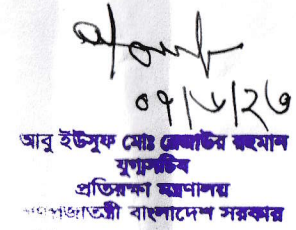 ০৭/৮/২৩
আবু ইউসুফ মোঃ রেজাউর রহমান
যুগ্মসচিব
প্রতিরক্ষা মন্ত্রণালয়
গণপ্রজাতন্ত্রী বাংলাদেশ সরকার